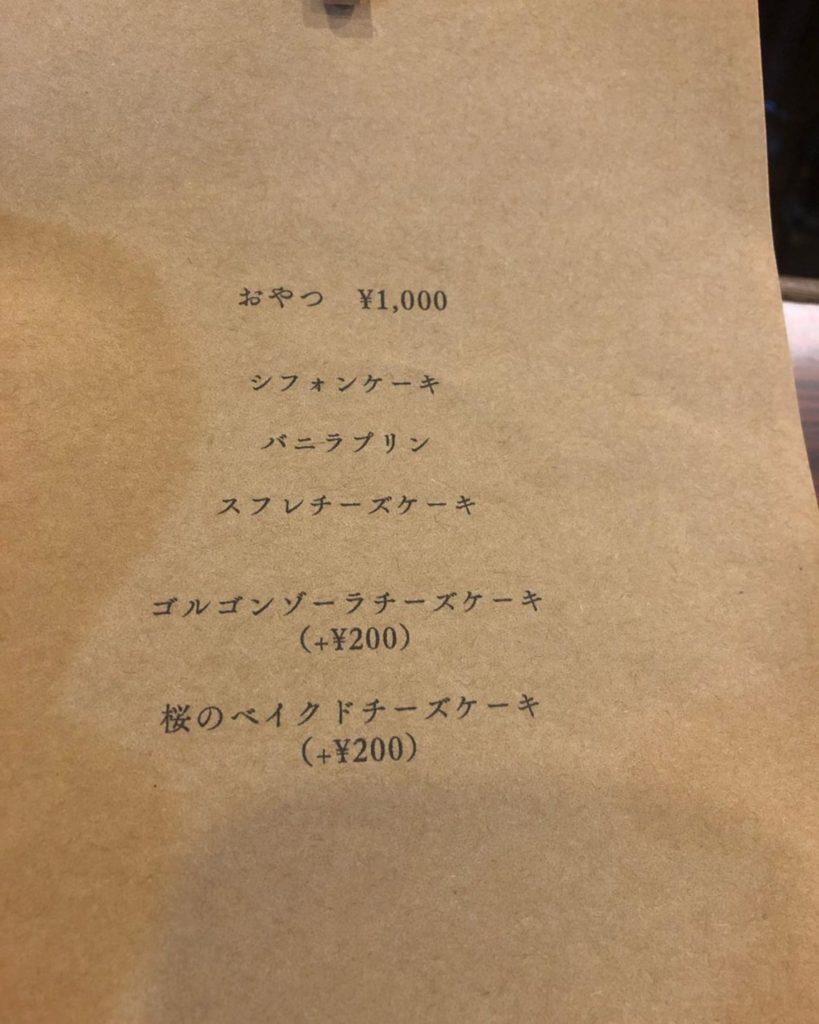 おやつ ¥1,000
シフォンケーキ
バニラプリン
スフレチーズケーキ
ゴルゴンゾーラチーズケーキ
(+¥200)
桜のベイクドチーズケーキ
(+¥200)